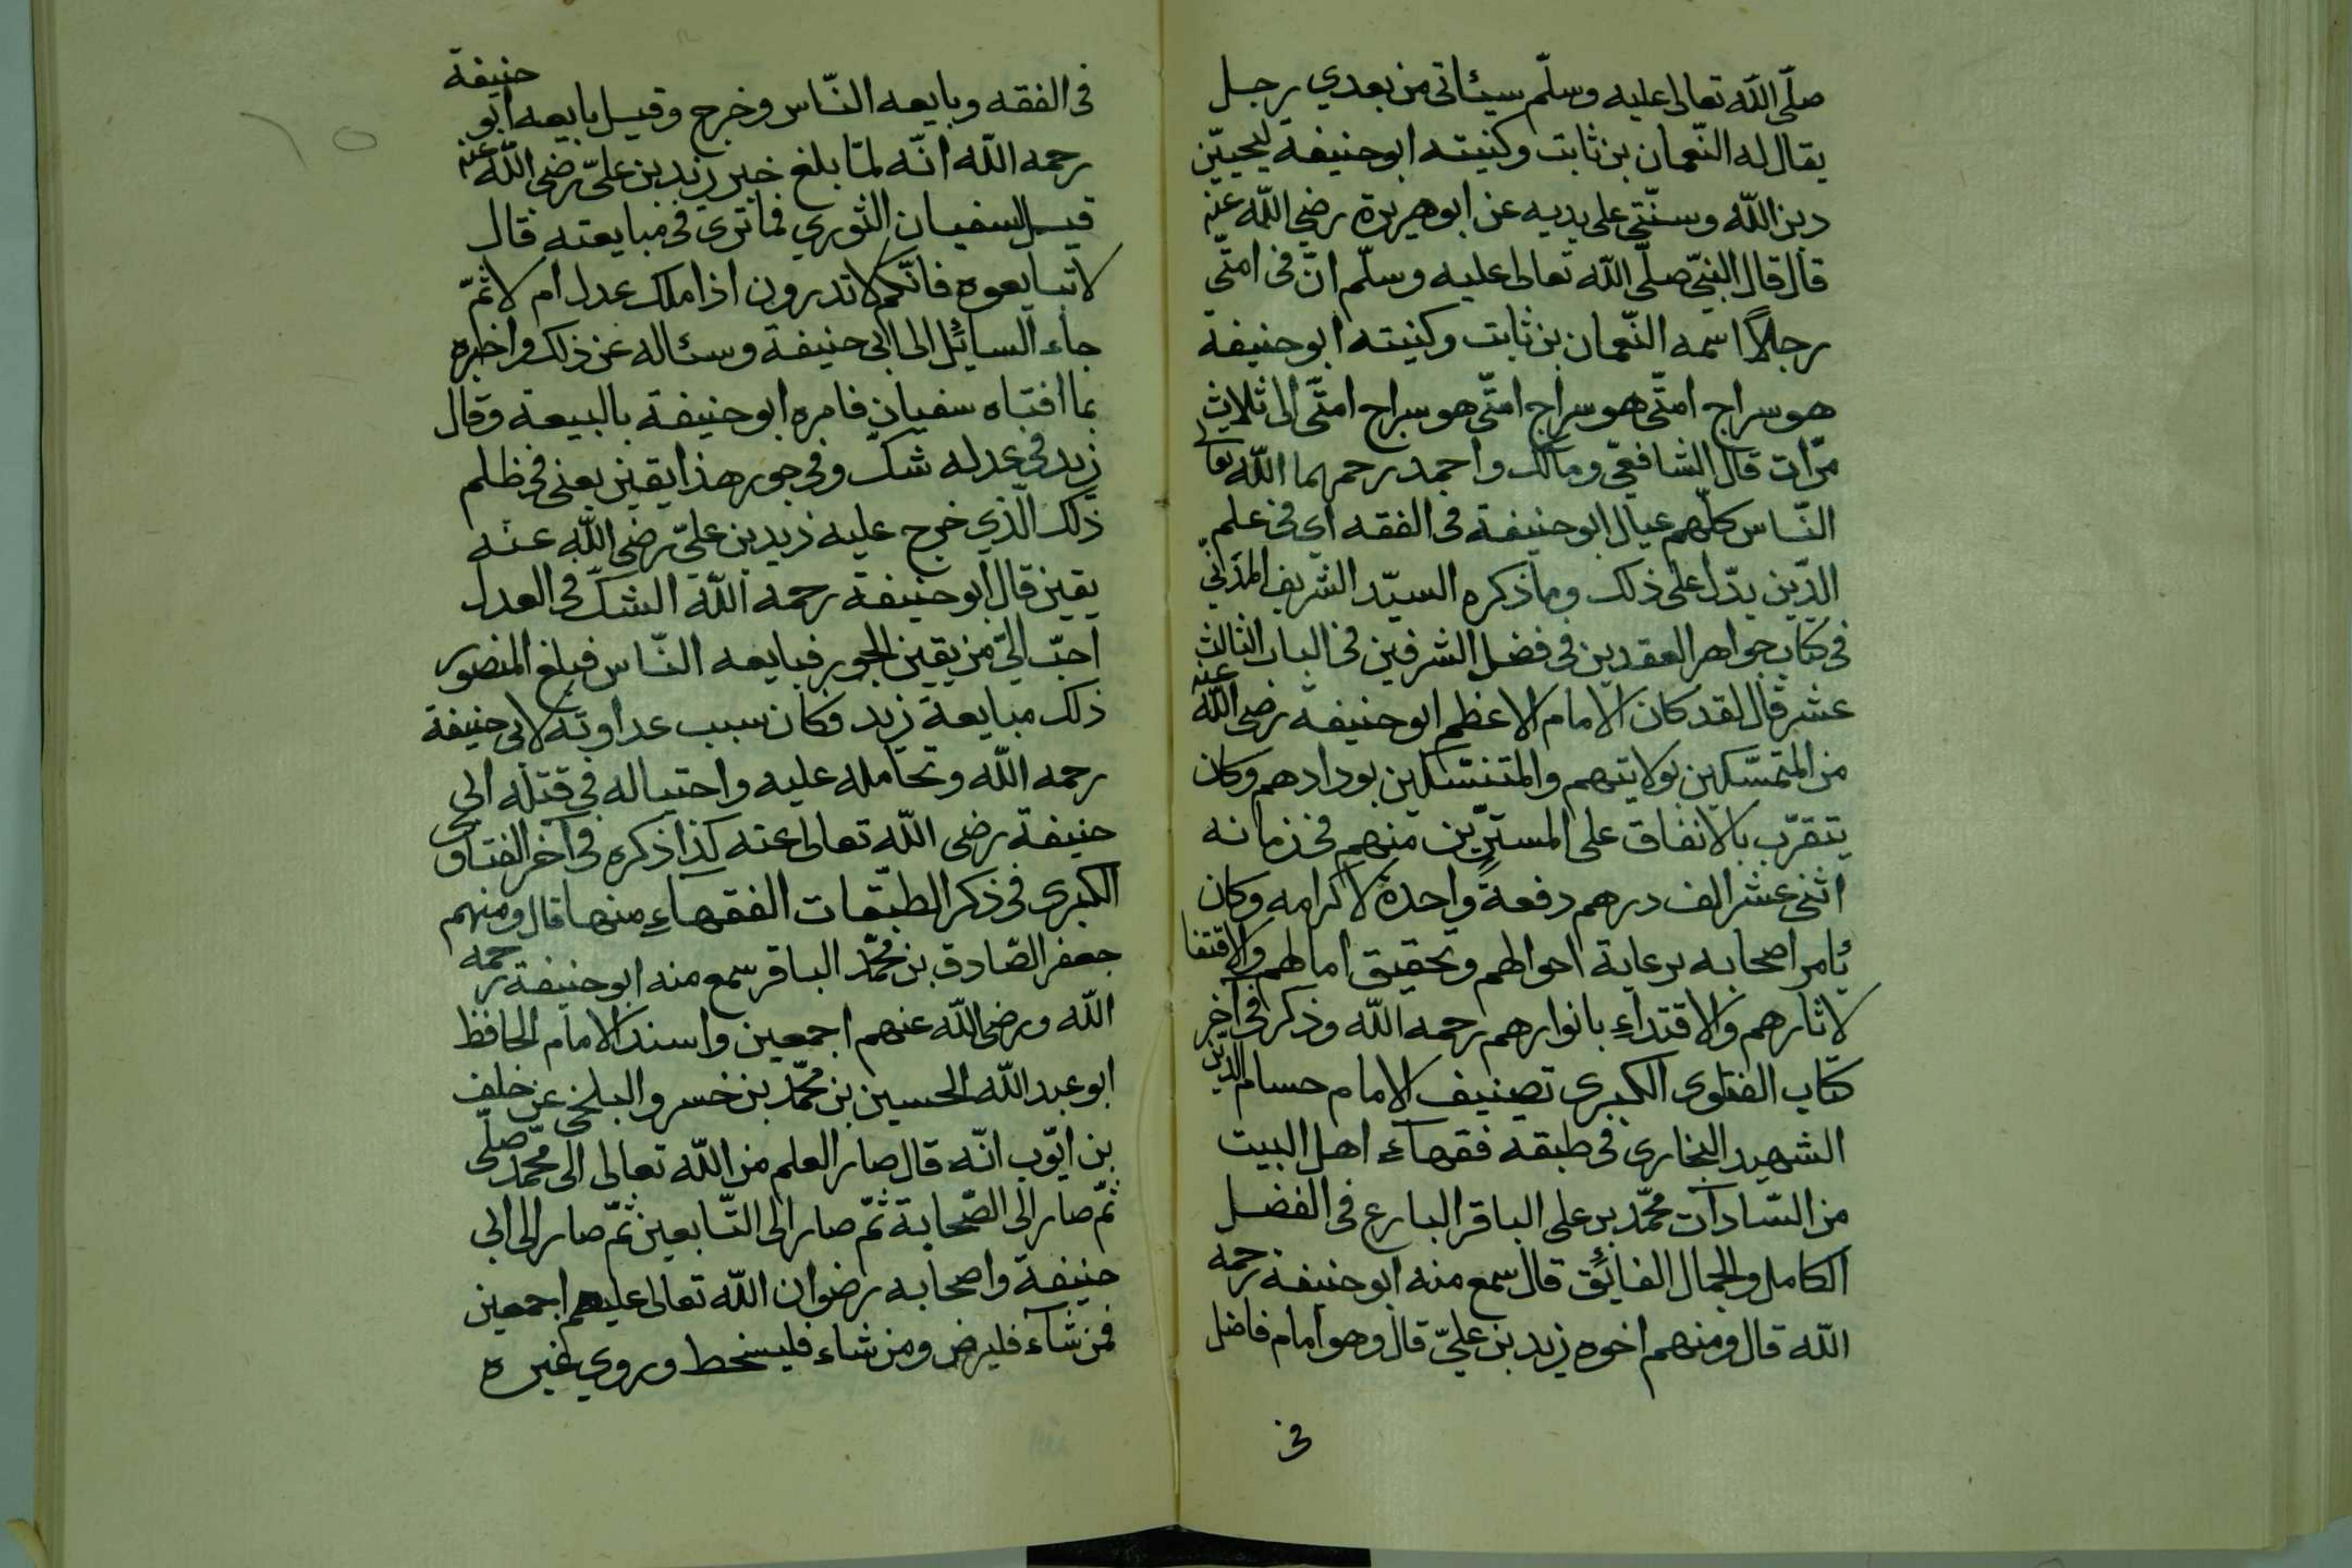 صلّى الله تعالى عليه وسلّم سيئاتى من بعدي رجل
يقال له النّعمان بن ثابت وكنيته ابو حنيفة ليحييّن
دين الله وسنّتى على يديه عن ابو هريرة رضي الله عنه
قال قال النبيّ صلّى الله تعالى عليه وسلّم انّ فى امتّى
رجلاً اسمه النّعمان بن ثابت وكنيته ابو حنيفة
هو سراج امتّى هو سراج امتّى هو سراج امتّى الى ثلاث
مرّات قال الشافعيّ ومالك واحمد رحمهما الله تعا
النّاس كلّهم عيال ابو حنيفة فى الفقه اي فى علم
الدّين يدّل على ذلك وما ذكره السيّد الشريف المدَنىّ
فى كتاب جواهر العقدين فى فضل الشرفين فى الباب الثالث
عشر قال لقد كان الامام الاعظم ابو حنيفة رضى الله عنه
من المتمسّكين بولايتهم والمتنسّكين بودادهم وكان
يتقرّب بالانفاق على المستترّين منهم فى زمانه
اثنى عشر الف درهم دفعةً واحدةً لاكرامه وكان
يُامر اصحابه برعاية احوالهم وتحقيق امالهم والاقتفا
لاثارهم والاقتداء بانوارهم رحمه الله وذكر فى آخر
كتاب الفتاوى الكبرى تصنيف الامام حسام الدّين
الشهيد البخارى فى طبقه فقهاء اهل البيت
من السّادات محمّد بن على الباقر البارع فى الفضل
الكامل والجمال الفائق قال سمع منه ابو حنيفة رحمه
الله قال ومنهم اخوه زيد بن عليّ قال وهو امام فاضل
فى
فى الفقه وبايعه النّاس وخرج وقيل بايعه ابو حنيفة
رحمه الله انّه لمّا بلغ خبر زيد بن عليّ رضى الله عنه
قيل لسفيان الثوري فما ترى فى مبايعته قال
لا تبايعوه فانّكم لا تدرون اذا ملك عدل ام لا ثمّ
جاء السائل الى ابى حنيفة وسئاله عن ذلك واخبره
بما افتاه سفيان فامره ابو حنيفة بالبيعة وقال
زيد فى عدله شكّ وفى جور هذا يقين يعنى فى ظلم
ذلك الّذي خرج عليه زيد بن عليّ رضى الله عنه
يقين قال ابو حنيفة رحمه الله الشكّ فى العدل
احبّ اليّ من يقين الجور فبايعه النّاس فبلغ المنصور
ذلك مبايعة زيد فكان سبب عداوته لابى حنيفة
رحمه الله وتحامله عليه واحتياله فى قتله ابى
حنيفة رضى الله تعالى عنه كذا ذكره فى آخر الفتاوى
الكبرى فى ذكر الطبّقات الفقهاء منها قال ومنهم
جعفر الصّادق بن محمّد الباقر سمع منه ابو حنيفة رحمه
الله ورضى الله عنهم اجمعين واسند الامام الحافظ
ابو عبد الله الحسين بن محمّد بن خسرو البلخى عن خلف
بن ايّوب انّه قال صار العلم من الله تعالى الى محمّد صلّى
ثمّ صار الى الصّحابة ثمّ صار الى التّابعين ثمّ صار الى ابى
حنيفة واصحابه رضوان الله تعالى عليهم اجمعين
فمن شآء فليرض ومن شاء فليسخط وروي غيره
١٥